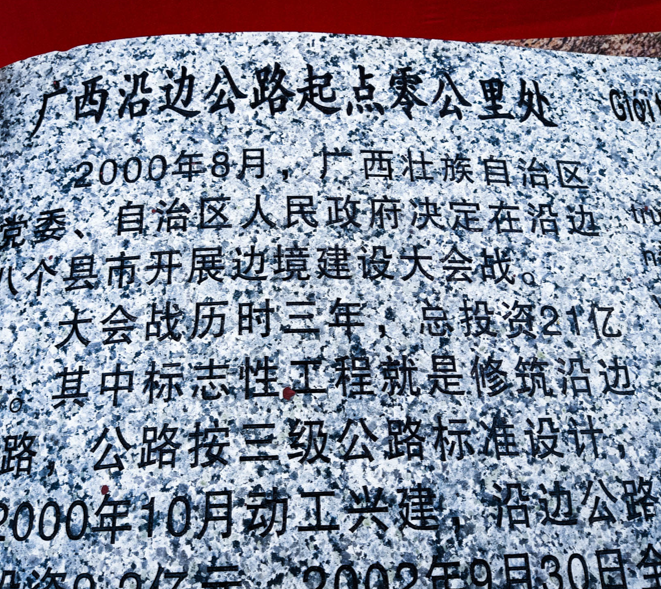 广西沿边公路起点零公里处 Giới
2000年8月，广西壮族自治区
党委、自治区人民政府决定在沿边
八个县市开展边境建设大会战。
大会战历时三年，总投资21亿
。其中标志性工程就是修筑沿边
路，公路按三级公路标准设计，
2000年10月动工兴建，沿边公路
投资9.2亿元，2002年9月30日全